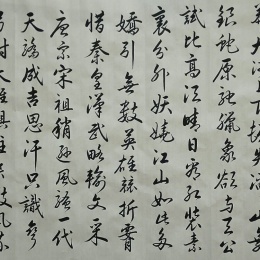 莽大河上下
銀蛇原馳臘象欲与天公
試比高須晴日看紅裝素
裹分外妖嬈江山如此多
嬌引無數英雄競折腰
惜秦皇漢武略輸文采
唐宗宋祖稍遜風騷一代
天驕成吉思汗只識彎
弓射大雕俱往矣數風流